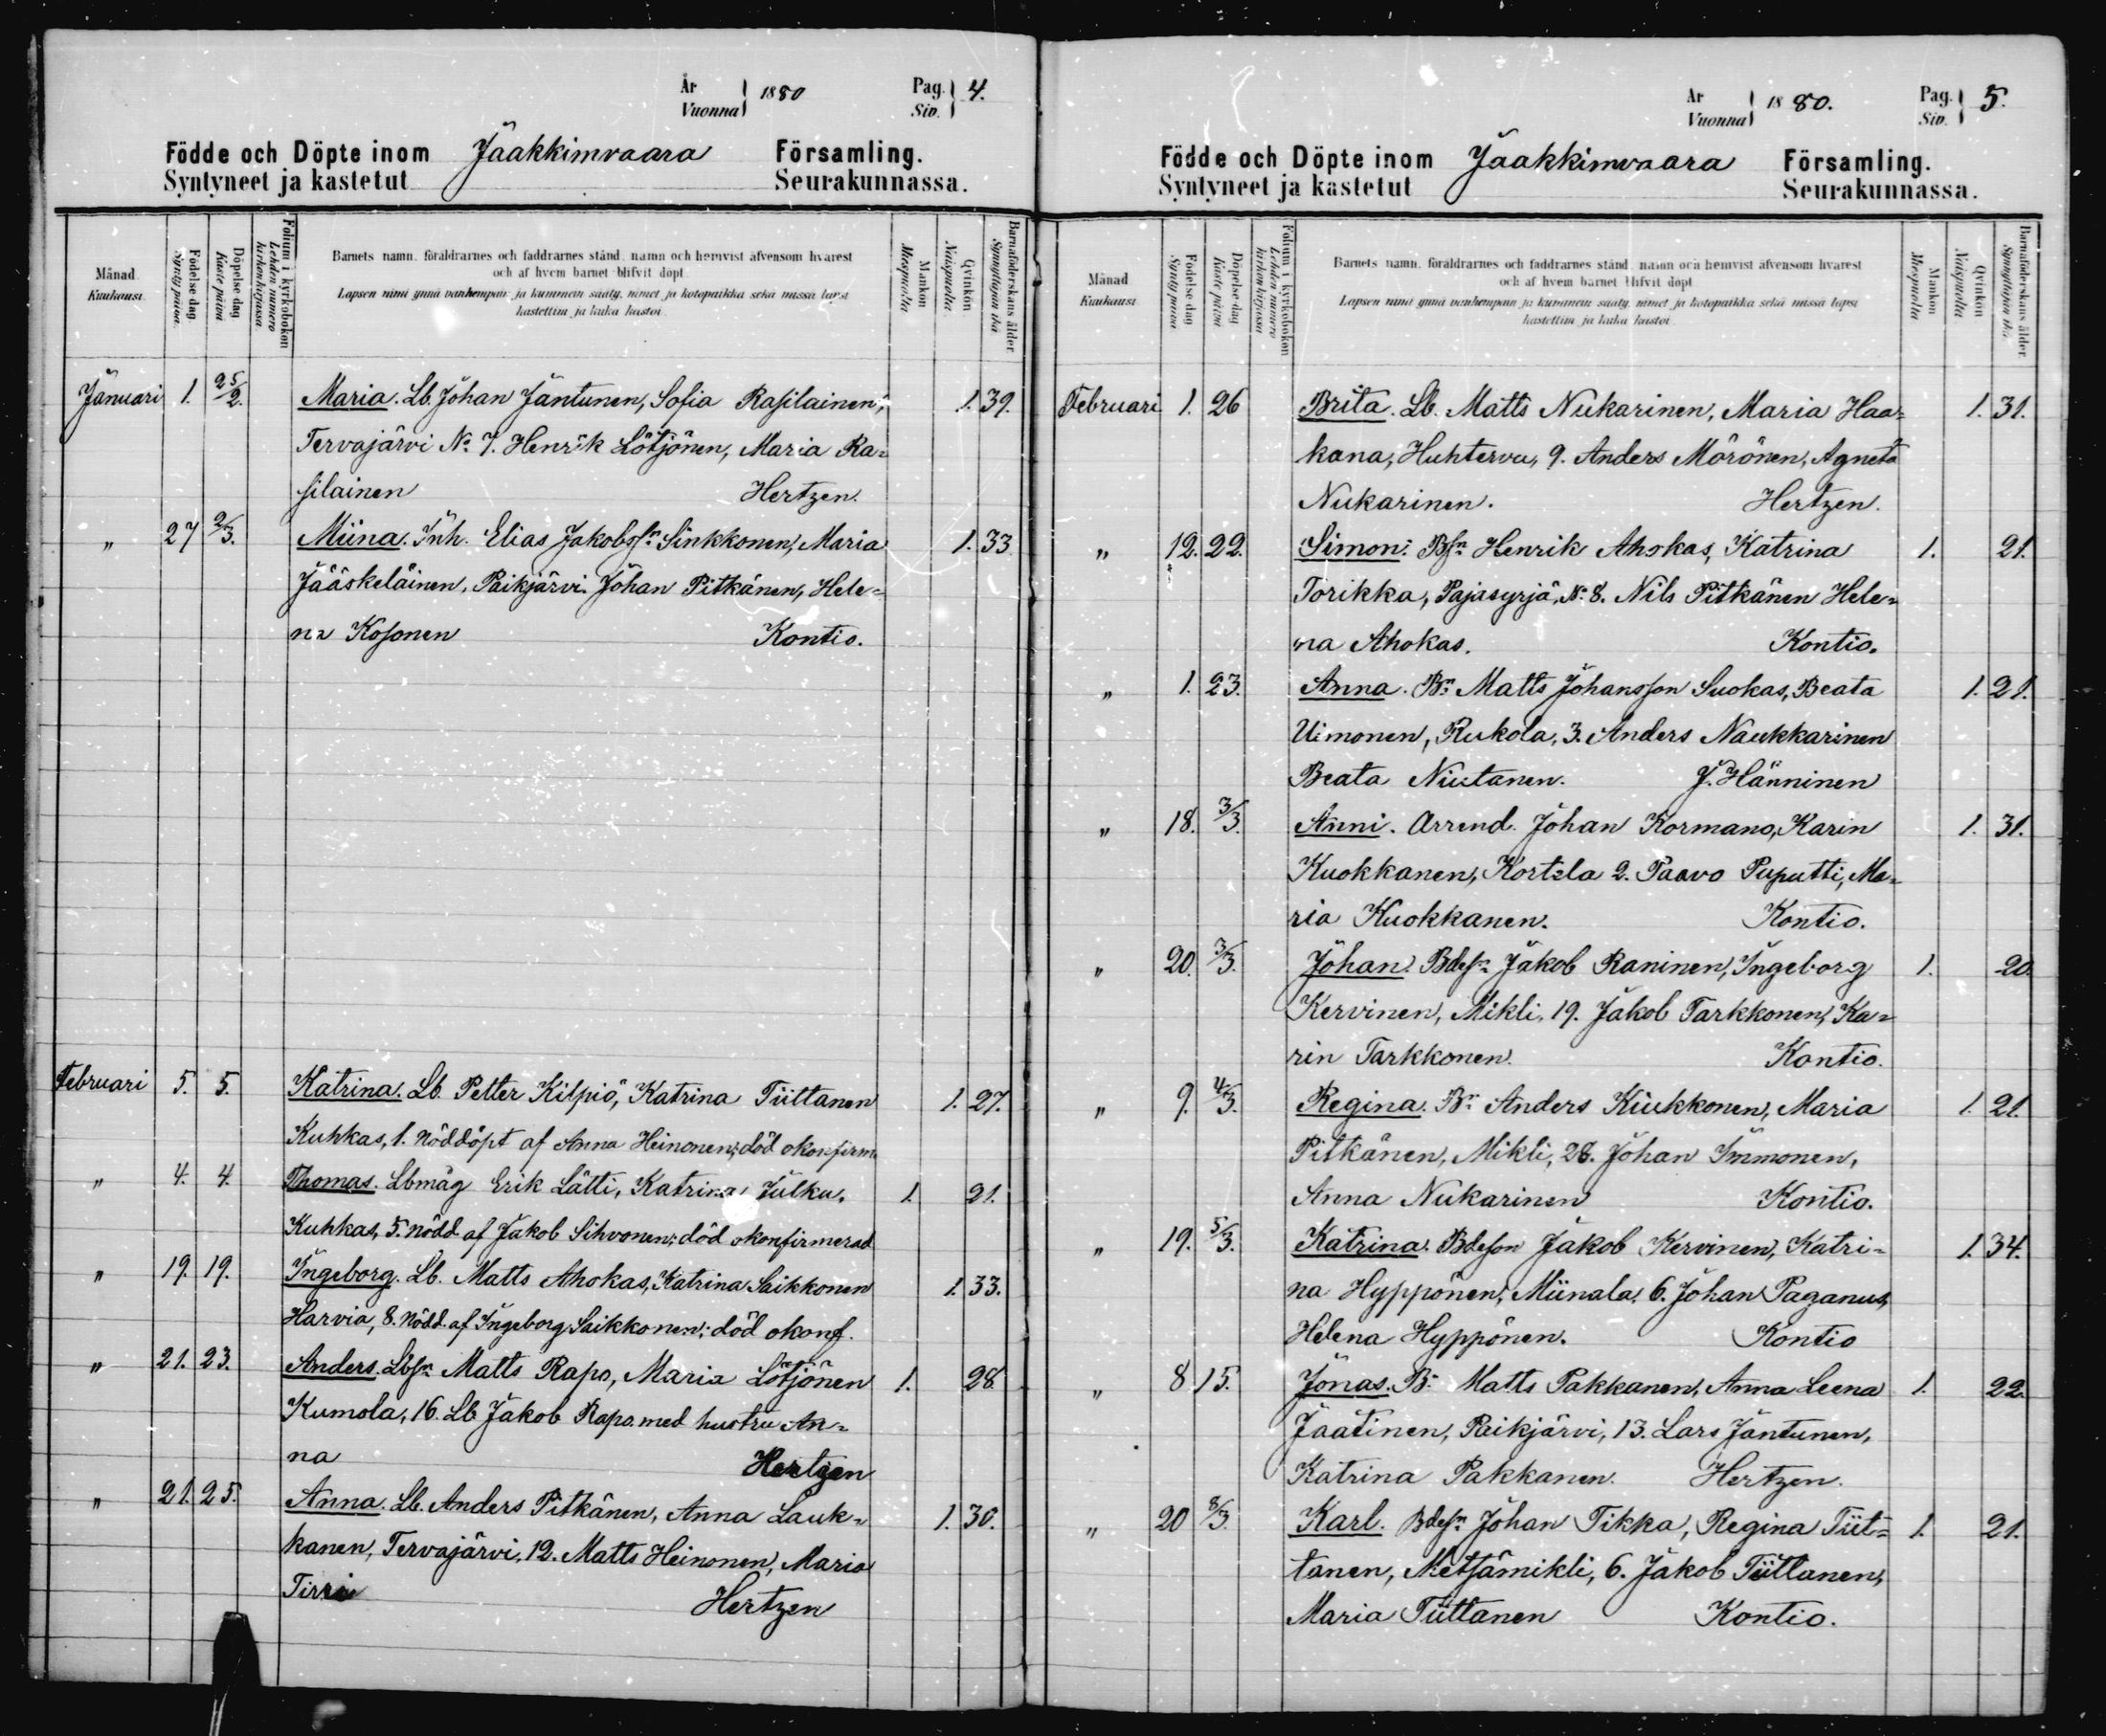 År
Vuonna
1880
Pag.
Siv.
4.
Födde och Döpte inom Jaakkimvaara Församling.
Syntyneet ja kastetut Seurakunnassa.
Månad.
Kuukausi.
Födelse dag.
Synty päivä.
Döpelse dag
Kaste päivä
Folium i kyrkoboken
Lehden numero
kirkonkirjassa.
Barnets namn, föräldrarnes och faddrarnes stånd, namn och hemvist äfvensom hvarest
och af hvem barnet blifvit döpt.
Lapsen nimi ynnä vanhempain ja kummein sääty, nimet ja kotopaikka sekä missä lapsi
kastettiin ja kuka kastoi.
Mankön
Miespuolia
Qvinkön
Naispuolia
Barnaföderskans ålder
Synnyttäjän ikä
Januari 1. 25/2. Maria. Lb. Johan Jantunen, Sofia Rasilainen, 1. 39.
Tervajärvi No 7. Henrik Lötjönen, Maria Ra-
silainen Hertzen.
" 27 2/3. Miina. Inh. Elias Jakobssn Sinkkonen, Maria 1. 33
Jääskeläinen, Paikjärvi. Johan Pitkänen, Hele-
na Kosonen Kontio.
Februari 5. 5. Katrina. Lb. Petter Kilpiö, Katrina Tiittanen 1. 27.
Kuhkas, 1. Nöddöpt af Anna Heinonen; död okonfirm
" 4. 4. Thomas. Lbmåg Erik Lätti, Katrina Julku, 1. 21.
Kuhkas, 5. Nödd af Jakob Sihvonen; död okonfirmerad
" 19. 19. Ingeborg. Lb. Matts Ahokas, Katrina Saikkonen 1. 33.
Harvia, 8. Nödd. af Ingeborg Saikkonen; död okonf.
" 21. 23. Anders. Lbsn Matts Rapo, Maria Lötjönen 1. 28
Kumola, 16. Lb Jakob Rapo med hustru An-
na Hertzen
" 21. 25. Anna. Lb. Anders Pitkänen, Anna Lauk- 1. 30.
kanen, Tervajärvi, 12. Matts Heinonen, Maria
Tirri Hertzen
År
Vuonna
1880.
Pag.
Siv.
5.
Födde och Döpte inom Jaakkimvaara Församling.
Syntyneet ja kastetut Seurakunnassa.
Månad
Kuukausi.
Födelse dag
Synty päivä
Döpelse dag
Kaste päivä
Folium i kyrkoboken
Lehden numero
kirkonkirjassa
Barnets namn, föräldrarnes och faddrarnes stånd, namn och hemvist äfvensom hvarest
och af hvem barnet blifvit döpt.
Lapsen nimi ynnä vanhempain ja kummein sääty, nimet ja kotopaikka sekä missä lapsi
kastettiin ja kuka kastoi.
Mankön
Miespuolia
Qvinkön
Naispuolia
Barnaföderskans ålder
Synnyttäjän ikä
Februari 1. 26 Brita. Lb. Matts Nukarinen, Maria Haa- 1. 31.
kana, Huhtervu, 9. Anders Mörönen, Agneta
Nukarinen. Hertzen.
" 12. 22. Simon. Bsn Henrik Ahokas, Katrina 1. 21.
Torikka, Pajasyrjä, No 8. Nils Pitkänen Hele-
na Ahokas. Kontio.
" 1. 23. Anna. Bn Matts Johansson Suokas, Beata 1. 21.
Uimonen, Rukola, 3. Anders Naukkarinen
Beata Niutanen. J. Hänninen
" 18. 3/3. Anni. Arrend. Johan Kormano, Karin 1. 31.
Kuokkanen, Kortela 2. Paavo Puputti, Ma-
ria Kuokkanen. Kontio.
" 20. 3/3. Johan. Bdesn Jakob Raninen, Ingeborg 1. 20
Kervinen, Mikli, 19. Jakob Tarkkonen, Ka-
rin Tarkkonen. Kontio.
" 9. 4/3. Regina. Bn Anders Kiukkonen, Maria 1. 21.
Pitkänen, Mikli, 28. Johan Immonen,
Anna Nukarinen Kontio.
" 19. 5/3. Katrina. Bdeson Jakob Kervinen, Katri- 1. 34.
na Hyppönen, Miinala, 6. Johan Paganus,
Helena Hyppönen. Kontio
" 8 15. Jonas. Bn Matts Pakkanen, Anna Leena 1. 22.
Jaatinen, Paikjärvi, 13. Lars Jantunen,
Katrina Pakkanen. Hertzen.
" 20 8/3. Karl. Bdesn Johan Tikka, Regina Tiit- 1. 21.
tanen, Metsämikli, 6. Jakob Tiittanen,
Maria Tiittanen Kontio.